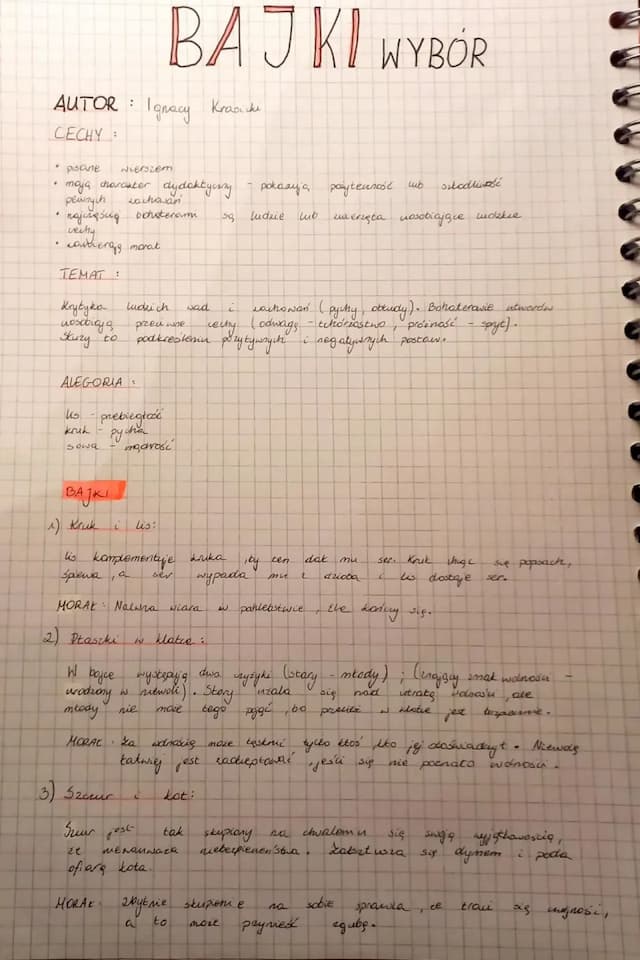 BAJKI WYBÓR
AUTOR : Ignacy Krasicki
CECHY :
• pisane wierszem
• mają charakter dydaktyczny - pokazują pożyteczność lub szkodliwość
pewnych zachowań
• najczęściej bohaterami są ludzie lub zwierzęta uosabiające ludzkie
cechy
• zawierają morał
TEMAT :
Krytyka ludzkich wad i zachowań (pychy, obłudy). Bohaterowie utworów
uosabiają przeciwne cechy (odwagę - tchórzostwo, próżność - spryt).
Służy to podkreśleniu pozytywnych i negatywnych postaw.
ALEGORIA :
lis - przebiegłość
kruk - pycha
sowa - mądrość
BAJKI
1) Kruk i lis:
Lis komplementuje kruka, by ten dał mu ser. Kruk chcąc się popisać,
śpiewa, a ser wypada mu z dzioba i lis dostaje ser.
MORAŁ: Naiwna wiara w pochlebstwie, źle kończy się.
2) Ptaszki w klatce:
W bajce występują dwa czyżyki (stary - młody) ; (znający smak wolności -
urodzony w niewoli). Stary użala się nad utratą wolności, ale
młody nie może tego pojąć, bo przecież w klatce jest bezpiecznie.
MORAŁ: Za wolnością może tęsknić tylko ktoś, kto jej doświadczył. Niewolę
łatwiej jest zaakceptować, jeśli się nie poznało wolności.
3) Szczur i kot:
Szczur jest tak skupiony na chwaleniu się swoją wyjątkowością,
że nie zauważa niebezpieczeństwa. Zakrztusza się dymem i pada
ofiarą kota.
MORAŁ: Zbytnie skupienie na sobie sprawia, że traci się czujność,
a to może przynieść zgubę.